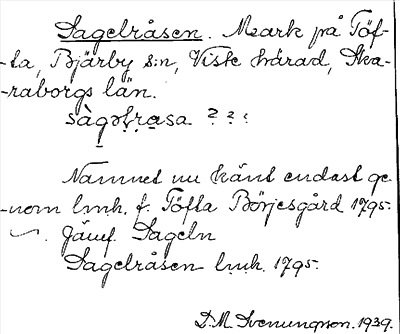 Sagelråsen. Mark på Töf-
-ta, Bjärby s:n, Viste härad, Ska-
-raborgs län.
sàgəl̥r̥a̤sa ? ? ?
Namnet nu känt endast ge-
-nom lmh. f. Töfta Börjesgård 1795.
Jämf. Sageln
Sagelråsen lmh. 1795.
D. M. Svenungsson. 1939.